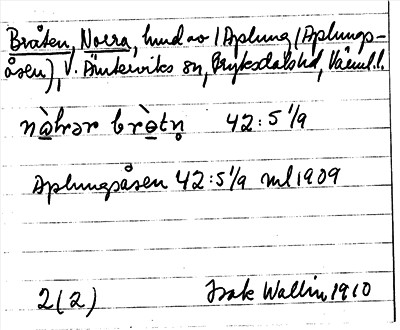 Bråten, Norra, hmd av (Aplung (Aplungs-
åsen), V. Ämterviks sn, Fryksdals hd, Värml.
nàhrər bròtn̥ 42:5 1/9
Aplungsåsen 42:5 1/9 ml 1909
2(2) Isak Wallin 1910